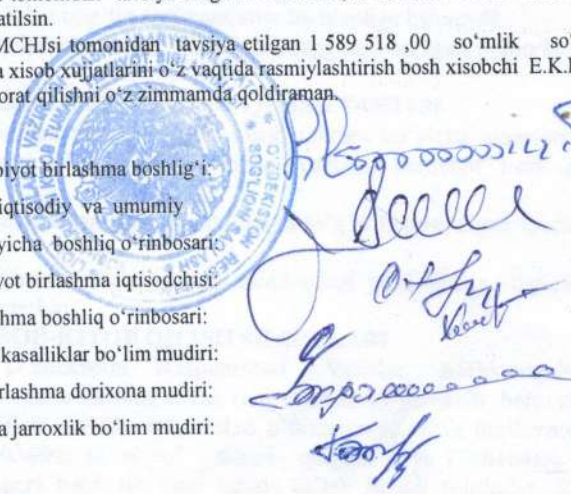 tomonidan tavsiya etilgan
atilsin.
MCHJsi tomonidan tavsiya etilgan 1 589 518 ,00 so‘mlik so‘
a xisob xujjatlarini o‘z vaqtida rasmiylashtirish bosh xisobchi E.K.
orat qilishni o‘z zimmamda qoldiraman.
biyot birlashma boshlig‘i:
iqtisodiy va umumiy
yicha boshliq o‘rinbosari:
yot birlashma iqtisodchisi:
hma boshliq o‘rinbosari:
kasalliklar bo‘lim mudiri:
rlashma dorixona mudiri:
a jarroxlik bo‘lim mudiri: